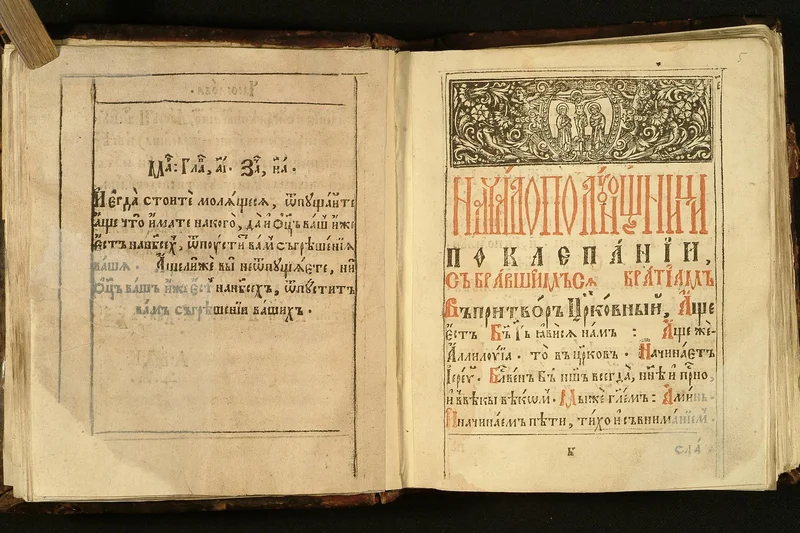 Ма҃: Гла҃, аі҃. За҃, на҃.
И҆ є҆гда̀ стоитѐ молѧщеся, ѿпꙋща́йте
а҆ще что̀ и҆мате на кого̀, да и҆ ѻ҆ц҃ъ ва́шъ и҆же
є҆стъ на нб҃сехъ, ѿпꙋстит ва́мъ съгрѣше́нїѧ
ва́шѧ. А҆ще ли же вы̀ не ѿпꙋщѧ́ете, ни
ѻ҆ц҃ъ ва́шъ и҆же є҆ст на нб҃сехъ, ѿпꙋститъ
ва́мъ съгрѣше́нїи ва́шихъ.
5
НАЧА́ЛО ПОЛꙊ́НОЩНИЦИ
ПО КЛЕПА́НЇИ,
СЪБРА́ВШИМЪСѦ БРА́ТЇАМЪ
Въ притво́ръ Цр҃ко́вный, А҆ще
є҆стъ Бг҃ъ Гь҃ ꙗ҆ви́сѧ на́мъ : А҆ще же
А҆ллилꙋ́їа . то̀ въ цр҃ковъ . Начина́етъ
І҆ере́ꙋ . Бл҃ве́нъ Бг҃ъ нш҃ъ всегда̀, нн҃ѣ и҆ при҃но,
и҆ в вѣ́кы вѣкѡ́м . Мы́ же гл҃ем : А҆ми́нь
И҆ начина́емъ пѣ́ти, ти́хо и҆ съ внима́нїем .
в҃
Сла́